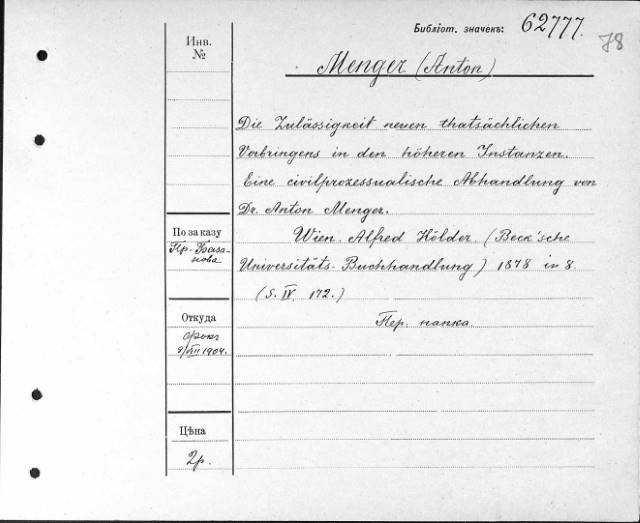 Библіот. значекъ: 62777.
78
Инв. №
Menger (Anton)
Die Zulässigkeit neuen thatsächlichen
Vorbringens in den höheren Instanzen.
Eine civilprozessualische Abhandlung von
Dr. Anton Menger.
По заказу
Пр. База-
нова
Wien. Alfred Hölder (Beck'sche
Universitäts-Buchhandlung) 1878 in 8.
(S. IV. 172.)
Пер. папка.
Откуда
1904.
Цѣна
2р.